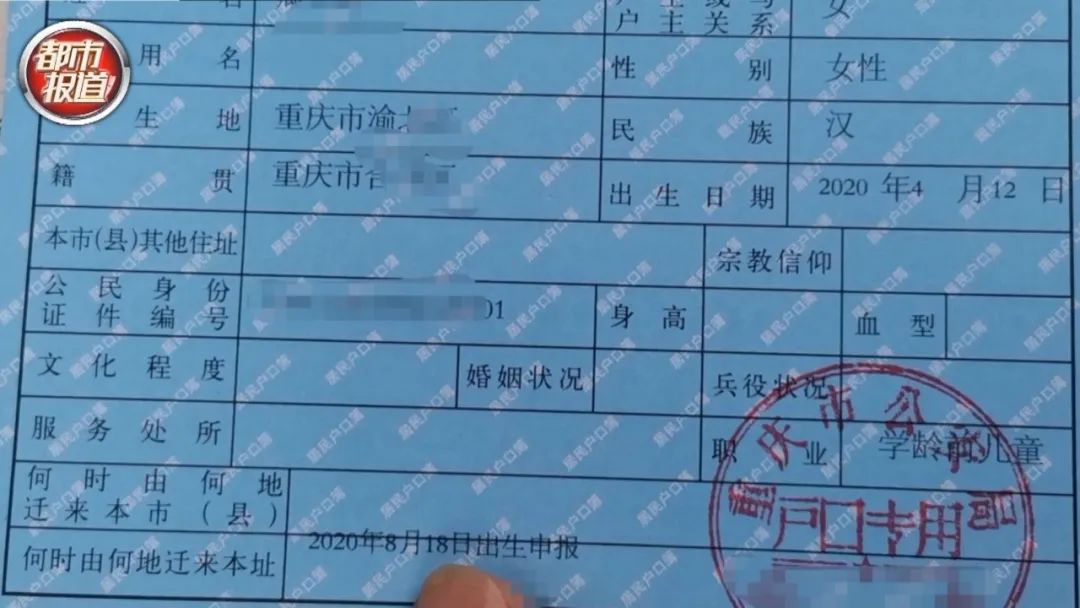 都市
报道
户主关系
女
用名
性别
女性
生地
重庆市渝
民族
汉
籍贯
重庆市
出生日期
2020年4月12日
本市(县)其他住址
宗教信仰
公民身份
证件编号
01
身高
血型
文化程度
婚姻状况
兵役状况
服务处所
职业
学龄前儿童
何时由何地
迁来本市(县)
何时由何地迁来本址
2020年8月18日出生申报
重庆市公安局
户口专用
居民户口簿